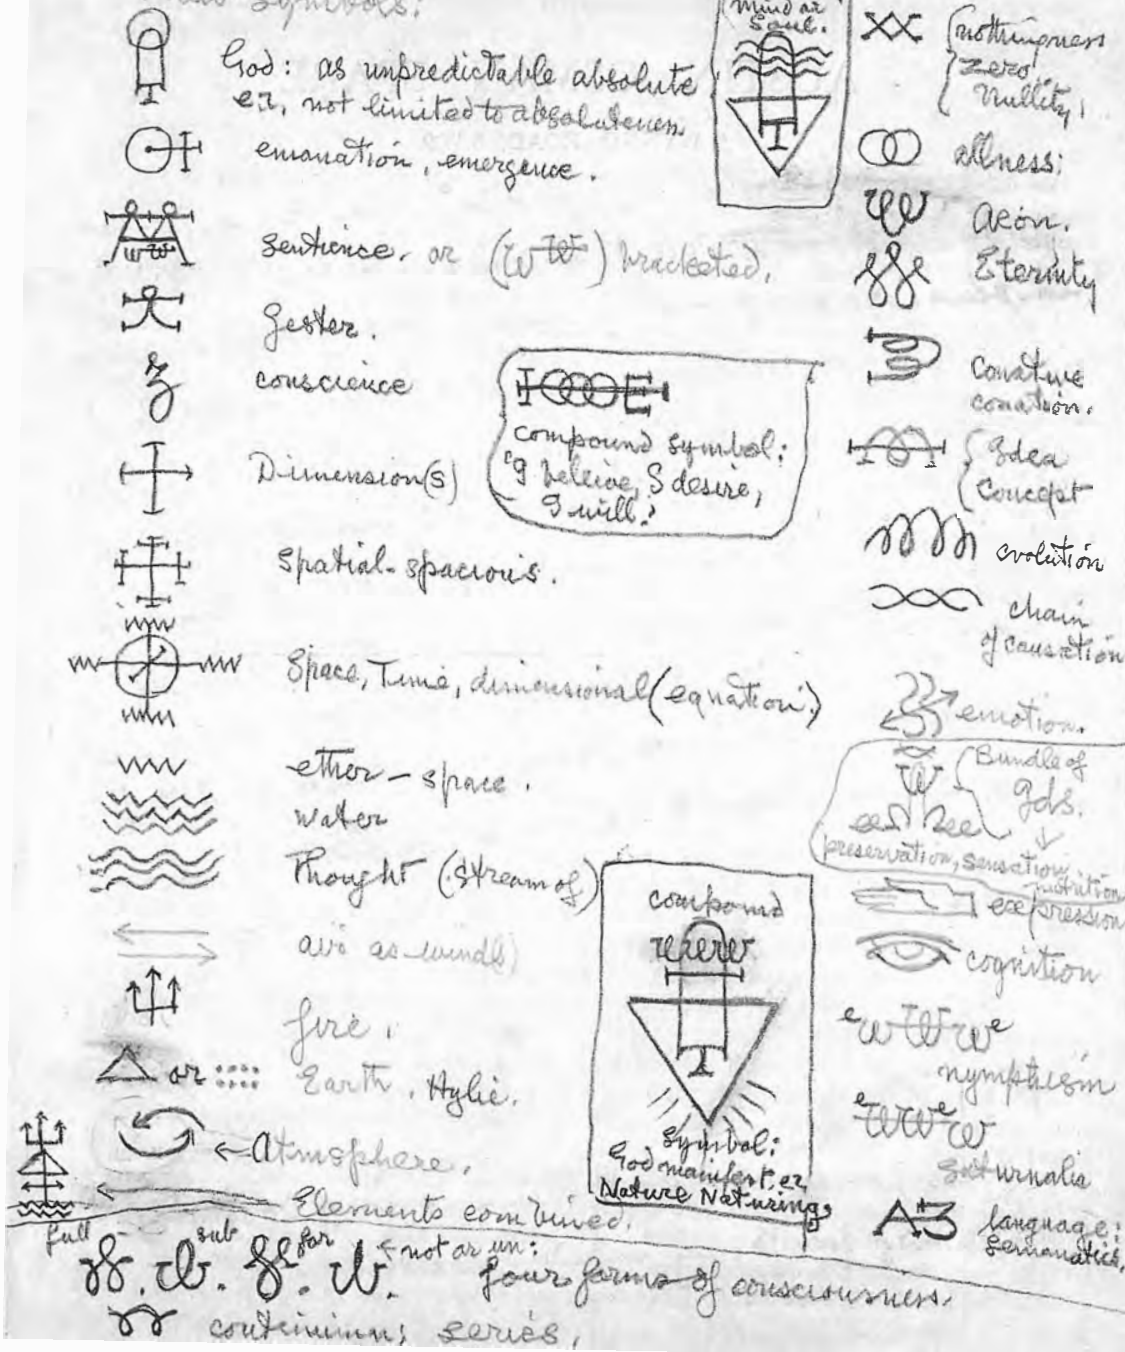 Symbols:
God: as unpredictable absolute
er, not limited to absoluteness.
emanation, emergence.
sentience. or ( ) bracketed.
Gester.
conscience
Dimension(s)
Spatial-spacious.
Space, Time, dimensional (equation.)
ether - space.
water
Thought (stream of)
air as winds)
fire.
or
Earth. Hylic.
Atmosphere.
Elements combined.
full
sub
for
not or un:
four forms of consciousness.
series.
Mind or
Soul.
compound symbol:
"I believe, I desire,
I will."
compound
symbol:
God manifest, er
Nature Naturing.
nothingness
zero,
nullity,
allness:
Aeon.
Eternity
Conative
conation.
Idea
Concept
evolution
chain
of causation
emotion.
Bundle of
Ids.
preservation, sensation,
nutrition
expression
cognition
nymphism
saturnalia
language:
semantics.